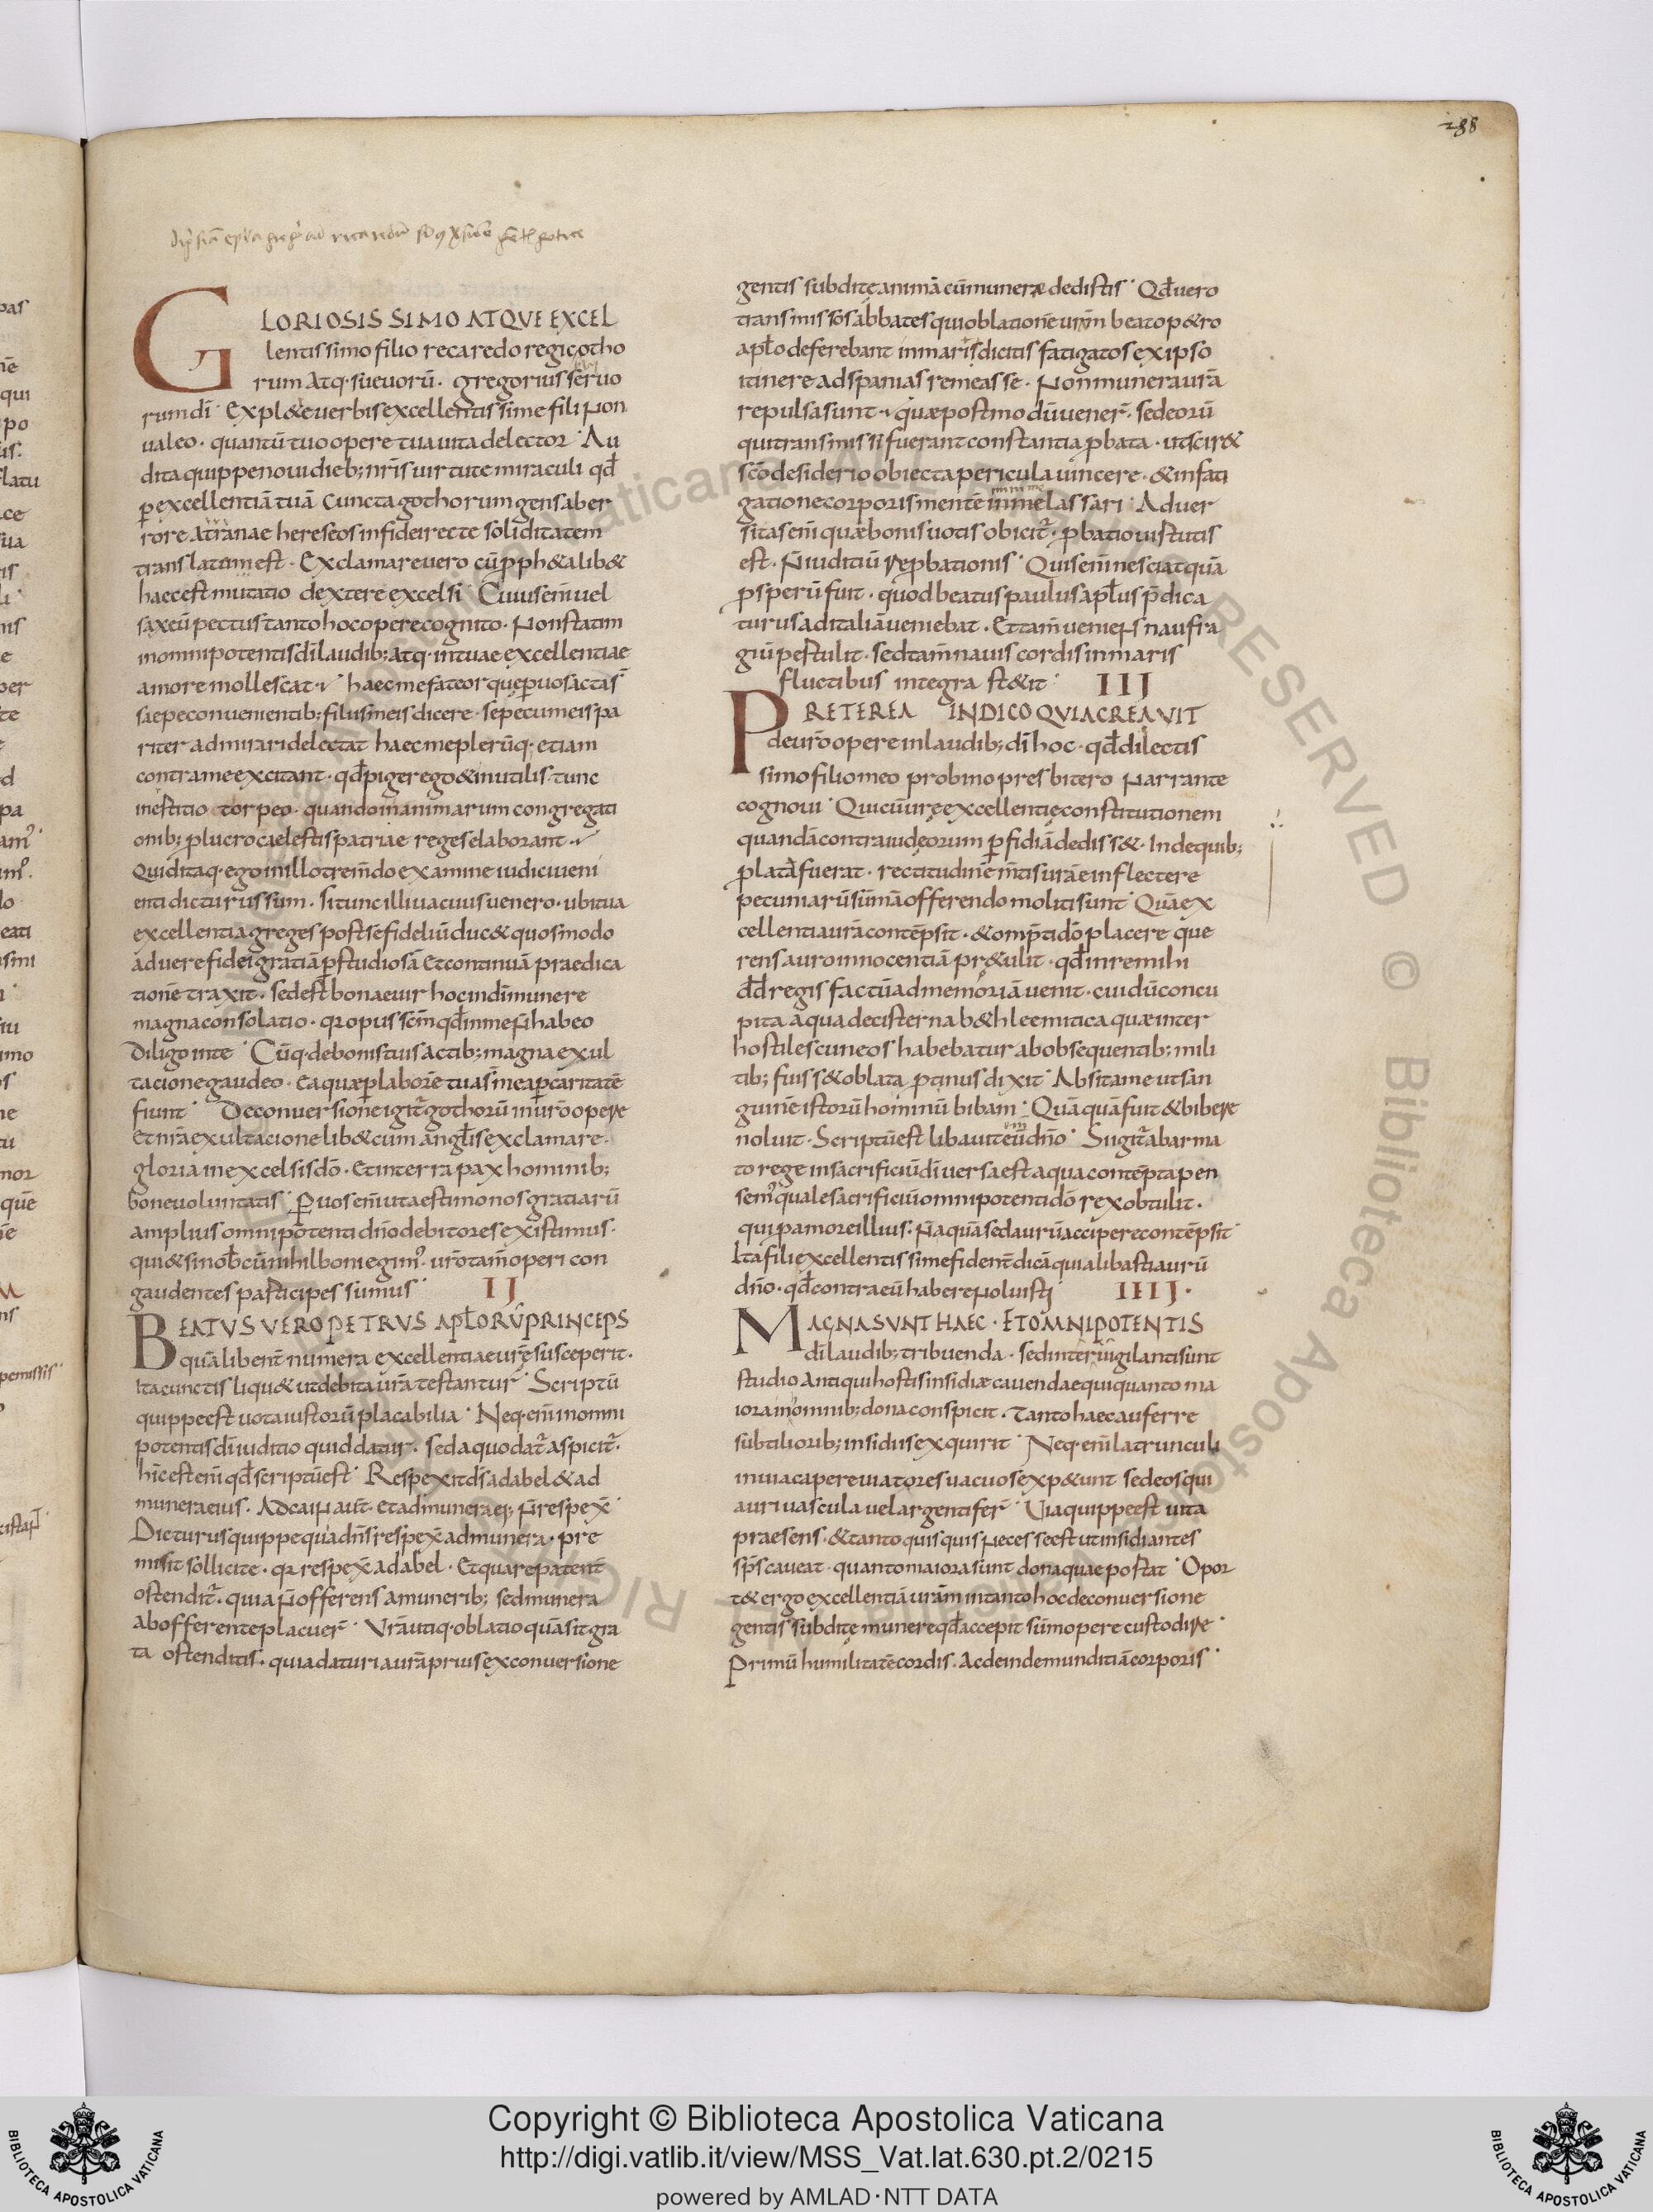 288
GLORIOSISSIMO ATQVE EXCEL
lentissimo filio recaredo regi gotho
rum atq· sueuorū· gregorius seruo
rum dī· Explere uerbis excellentissime fili Non
ualeo· quantū tuo opere tua uita delector· Au
dita quippe noui dieb; nr̄is uirtute miraculi qd̄
p̲ excellentiā tuā cuncta gothorum gens ab er
rore arrianae hereseos in fidei recte soliditatem
translatum est· Exclamare uero cū pph & alib&
haec est mutatio dextere excelsi· Cuius enī uel
saxeū pectus tanto hoc opere cognito· Non statim
in omnipotentis dī laudib; atq· in tuae excellentiae
amore mollescat· haec me fateor quę p̲ uos acta s̄
saepe conuenientib; filiis meis dicere· sepe cum eis pa
riter admirari delectat haec me plerūq· etiam
contra me excitant· qd̄ piger ego & inutilis tunc
inerti otio torpeo· quando in animarum congregati
onib; p lucro caelestis patriae reges elaborant·
Quid itaq· ego in illo tremdo examine iudici ueni
enti dicturus sum· si tunc illi uacuus uenero· ubi tua
excellentia greges post se fideliū duc& quos modo
ad uere fidei gratiā p̲ studiosā et continuā praedica
tionē traxit· sed est bonae uir hoc in dī munere
magna consolatio· qr opus scm̄ qd̄ in me N̄ habeo
Diligo in te· Cūq· de bonis tuis actib; magna exul
tacione gaudeo· ea quae p̲ laborē tua s̄ mea p̲ caritatē
fiunt· De conuersione igit̄ gothorū in ur̄o opere
et nr̄a exultacione lib& cum angl̄is exclamare·
gloria in excelsis dō· Et in terra pax hominib;
bone uoluntatis· P̲ uos enī ut aestimo nos gratiarū
amplius omnipotenti dn̄o debitores existimus·
qui & si uob̄cū nihil boni egim'· ur̄o tam̄ operi con
gaudentes participes sumus· II
BEATVS VERO PETRVS APL̄ORŪ PRINCEPS
quā libent̄ munera excellentiae ur̄ę susceperit·
Ita cunctis liqu& ut debita ur̄a testantur· Scriptū
quippe est uota iustorū placabilia· Neq· enī in omni
potentis dī iuditio quid datur· sed a quo dat̄ aspicit̄·
hinc est enī qd̄ scriptū est· Respexit d̄s ad abel & ad
munera eius· Ad cain aut̄· et ad munera ei; N̄ respex̄·
Dicturus quippe quia dn̄s respex̄ ad munera· pre
misit sollicite· qr respex̄ ad abel· Et qua re patent̄
ostendit̄· quia N̄ offerens a munerib; sed munera
ab offerente placuer̄· Vr̄a utiq· oblatio quā sit gra
ta ostenditis· quia daturi aurā prius ex conuersione
gentis subditę animā cū munera dedistis· Qd̄ uero
transmissos abbates qui oblationē ur̄m beato p&ro
apl̄o deferebant in maris dicitis fatigatos ex ipso
itinere ad spanias remeasse· Non munera ur̄a
repulsa sunt· quae postmodū uener̄· sed eorū
qui transmissi fuerant constantia p̲bata· ut scir&
scō desiderio obiecta pericula uincere· & in fati
gatione corporis mentē minime lassari· Aduer
sitas enī quae bonis uotis obicit̄· p̲batio uirtutis
est· N̄ iuditiū rep̲bationis· Quis enī nesciat quā
p̲sperū fuit· quod beatus paulus apl̄us p̄dica
turus ad italiā ueniebat· Et tam̄ ueniens naufra
giū p̲tulit· sed tam̄ nauis cordis in maris
fluctibus integra st&it· III
PRETEREA INDICO QVIA CREAVIT
de ur̄o opere in laudib; dī hoc· qd̄ dilectis
simo filio meo probino presbitero narrante
cognoui· Qui cū ur̄ę excellentię constitutionem
quandā contra iudeorum p̲fidiā dediss&· Inde quib;
p̲lata fuerat· rectitudinē mtis ur̄ae inflectere
pecuniarū sūmā offerendo moliti sunt· Quā ex
cellentia ur̄a contēpsit· & omp̄tī dō placere que
rens auro innocentiā pr&ulit· qd̄ in re mihi
dd̄ regis factū ad memoriā uenit· cui dū concu
pita aqua de cisterna b&hleemitica quae inter
hostiles cuneos habebatur ab obsequentib; mili
tib; fuiss& oblata p̲tinus dixit· Absit a me ut san
guinē istorū hominū bibam· Quā quā fuit & bibere
noluit· Scriptū est libauit eū dn̄o· Si igit̄ ab arma
to rege in sacrificiū dī uersa est aqua contēpta pen
sem' quale sacrificiū omnipotenti dō rex obtulit·
qui p̲ amore illius· N̄ aquā sed aurū accipere contēpsit·
Ita fili excellentissime fident̄ dicā quia libasti aurū
dn̄o· qd̄ contra eū habere noluisti IIII·
MAGNA SVNT HAEC· ET OMNIPOTENTIS
dī laudib; tribuenda· sed inter uigilanti sunt
studio antiqui hostis insidiae cauendae qui quanto ma
iora in omnib; dona conspicit· Tanto haec auferre
subtiliorib; insidiis exquirit· Neq· enī latrunculi
in uia capere uiatores uacuos exp&unt sed eos qui
auri uascula uel argenti fer̄· Via quippe est uita
praesens· & tanto quisquis necesse est ut insidiantes
sp̄s caueat· quanto maiora sunt dona quae portat· Opor
t& ergo excellentiā ur̄am in tanto hoc de conuersione
gentis subditę munere qd̄ accepit sūmopere custodire·
Primū humilitatē cordis· Ac deinde munditiā corporis·
Copyright © Biblioteca Apostolica Vaticana
http://digi.vatlib.it/view/MSS_Vat.lat.630.pt.2/0215
powered by AMLAD·NTT DATA
BIBLIOTECA APOSTOLICA VATICANA
BIBLIOTECA APOSTOLICA VATICANA